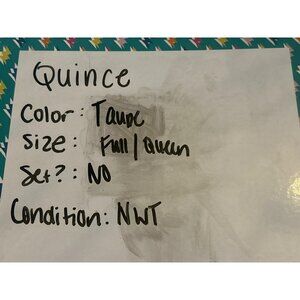 Quince
Color: Taupe
Size: Full/Queen
Set?: No
Condition: NWT